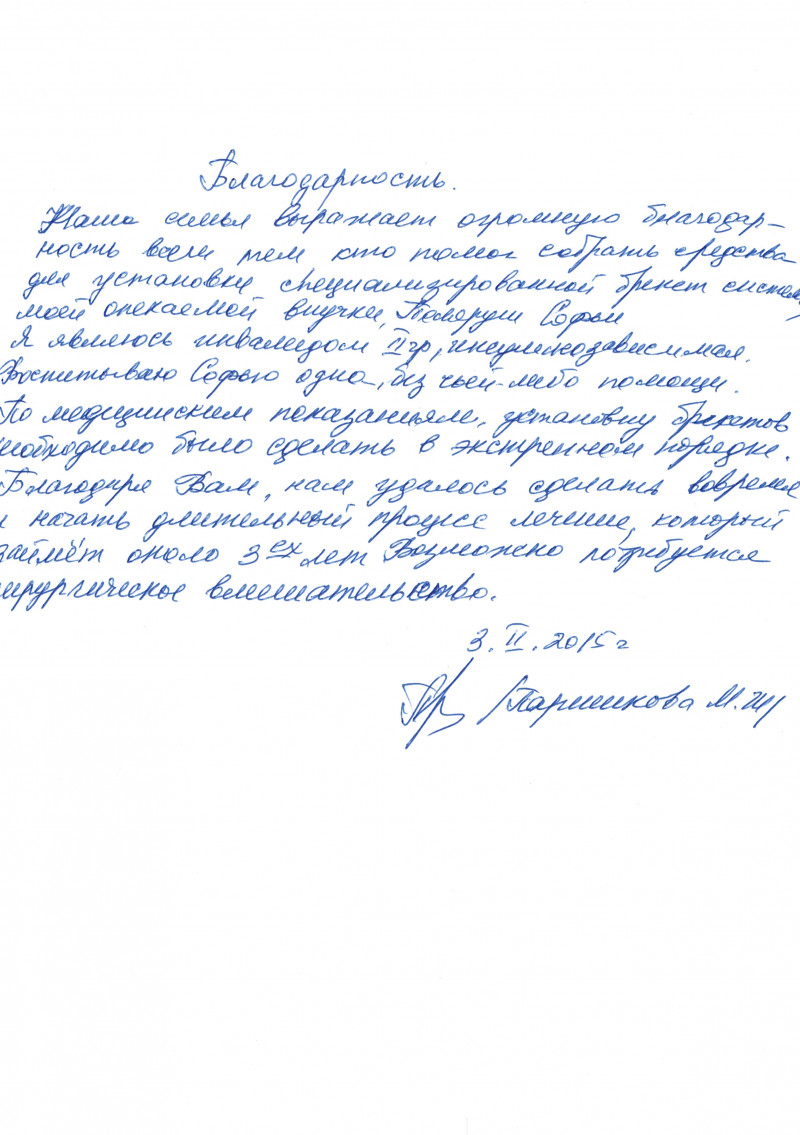 Благодарность.
Наша семья выражает огромную благодар-
ность всем тем кто помог собрать средства
для установки специализированной брекет систем
моей опекаемой внучки, Софьи
Я являюсь инвалидом II гр, инсулинозависимая.
Воспитываю Софью одна, без чьей-либо помощи.
По медицинским показаньям, установку брекетов
необходимо было сделать в экстренном порядке.
Благодаря Вам, нам удалось сделать вовремя
и начать длительный процесс лечение, который
займёт около 3ех лет Возможно потребуется
хирургическое вмешательство.
3. II. 2015г
/Паршикова М.